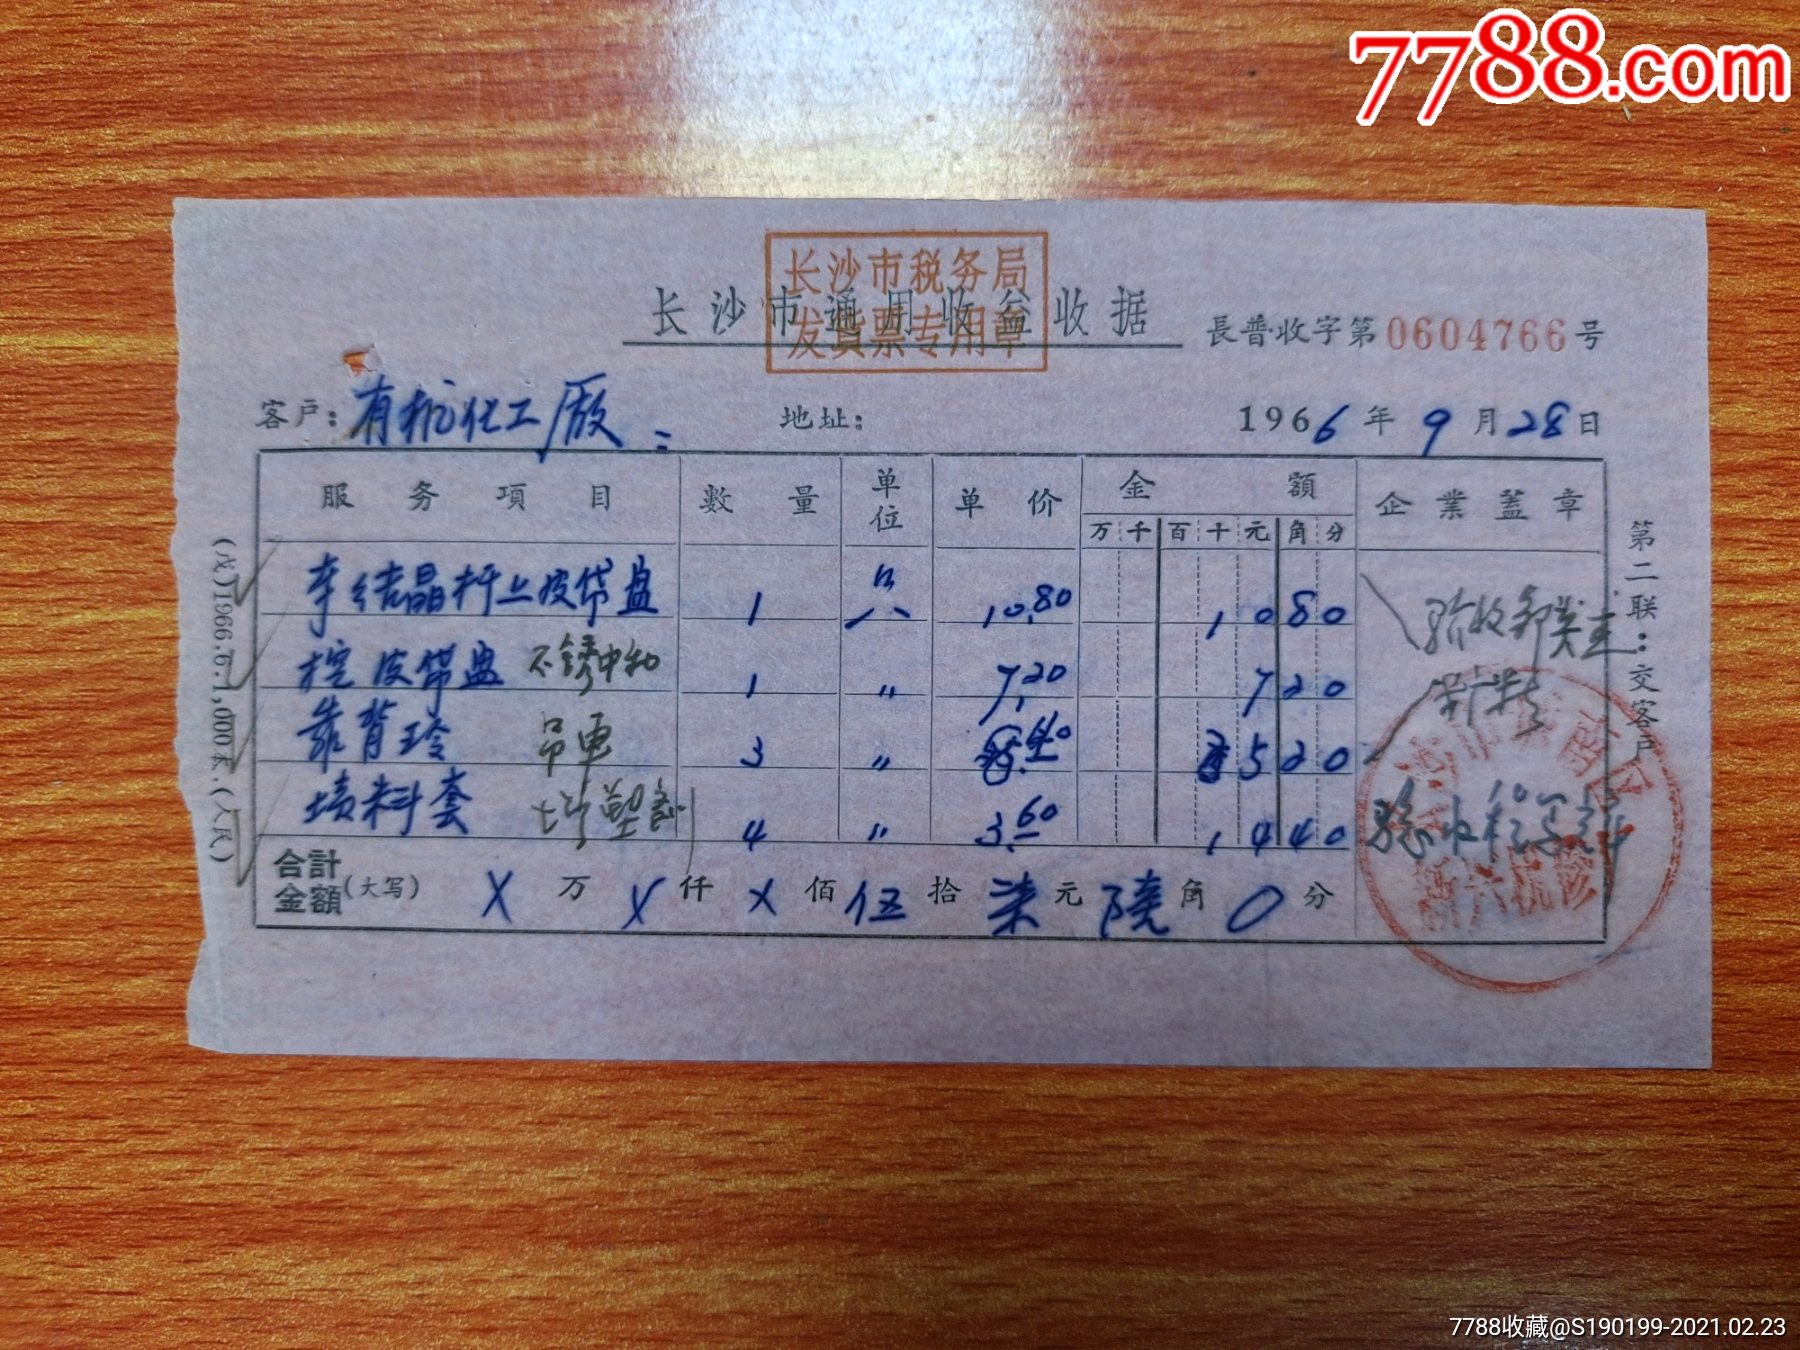 7788.com
长沙市税务局
发货票专用章
长沙市通用收益收据
長普收字第0604766号
客户：有机化工厰
地址：
1966年9月28日
服务項目 數量 单位 单价 金額 企業蓋章
万千百十元角分
车结晶杆上皮带盘 1 只 10.80 1080
挖皮带盘 不锈中和 1 〃 7.20 720
靠背玲 吊車 3 〃 8.40 2520
填料套 4 〃 3.60 1440
合計金額(大写) X万X仟X佰伍拾柒元陸角0分
验收
第二联：交客户
(戊)1966.6.1,000本.(人民)
7788收藏@S190199-2021.02.23